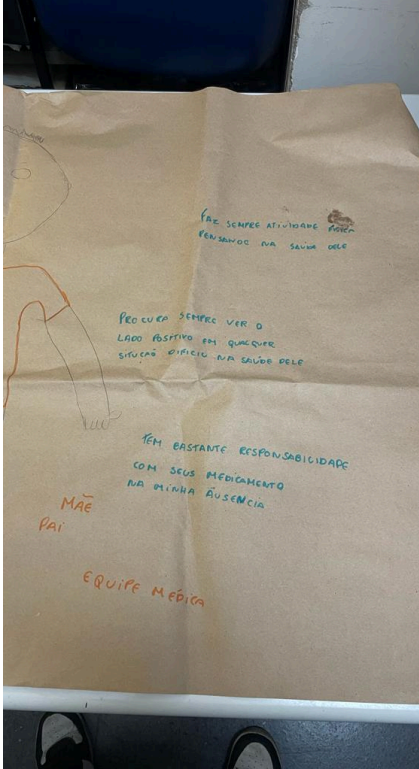 FAZ SEMPRE ATIVIDADE
PENSANOC NA SAUDA DELE
PROCURA SEMPRE VER O
LADO POSITIVO EM QUALQUER
SITUÇAÕ DIFICIU NA SAÚDE DELE
TEM BASTANTE RESPONSABILIDADE
COM SEUS MEDICAMENTO
NA MINHA ÁUSENCIA
MÃE
PAI
EQUIPE MEDICA